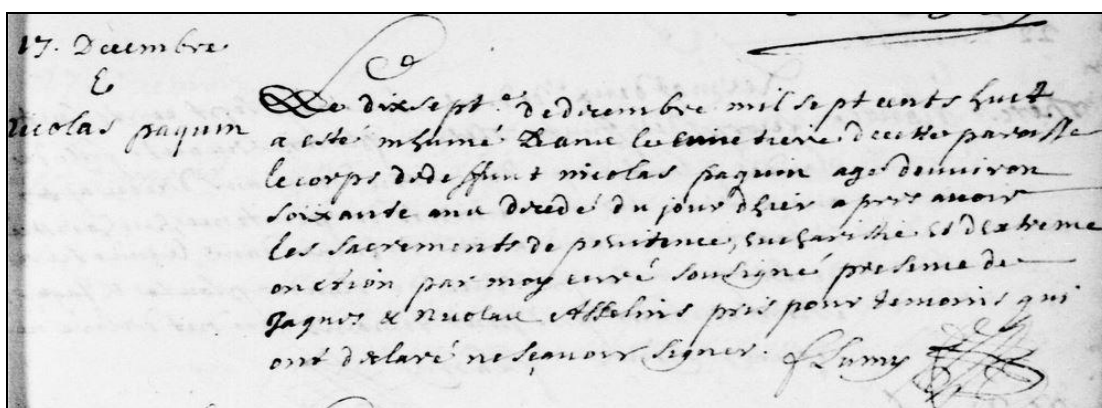 17. Decembre
nicolas paquin
Le dixsept.e de decembre mil sept cents huit
a este inhumé dans le cimetiere de cette paroisse
le corps de deffunt nicolas paquin agé denviron
soixante ans decedé du jour dhier apres avoir
les sacrements de penitence, eucharistie et dextreme
onction par moy curé sousigné presence de
Jaques & nicolas Asselins pris pour temoins qui
ont declaré ne sçavoir signer. f Lamy